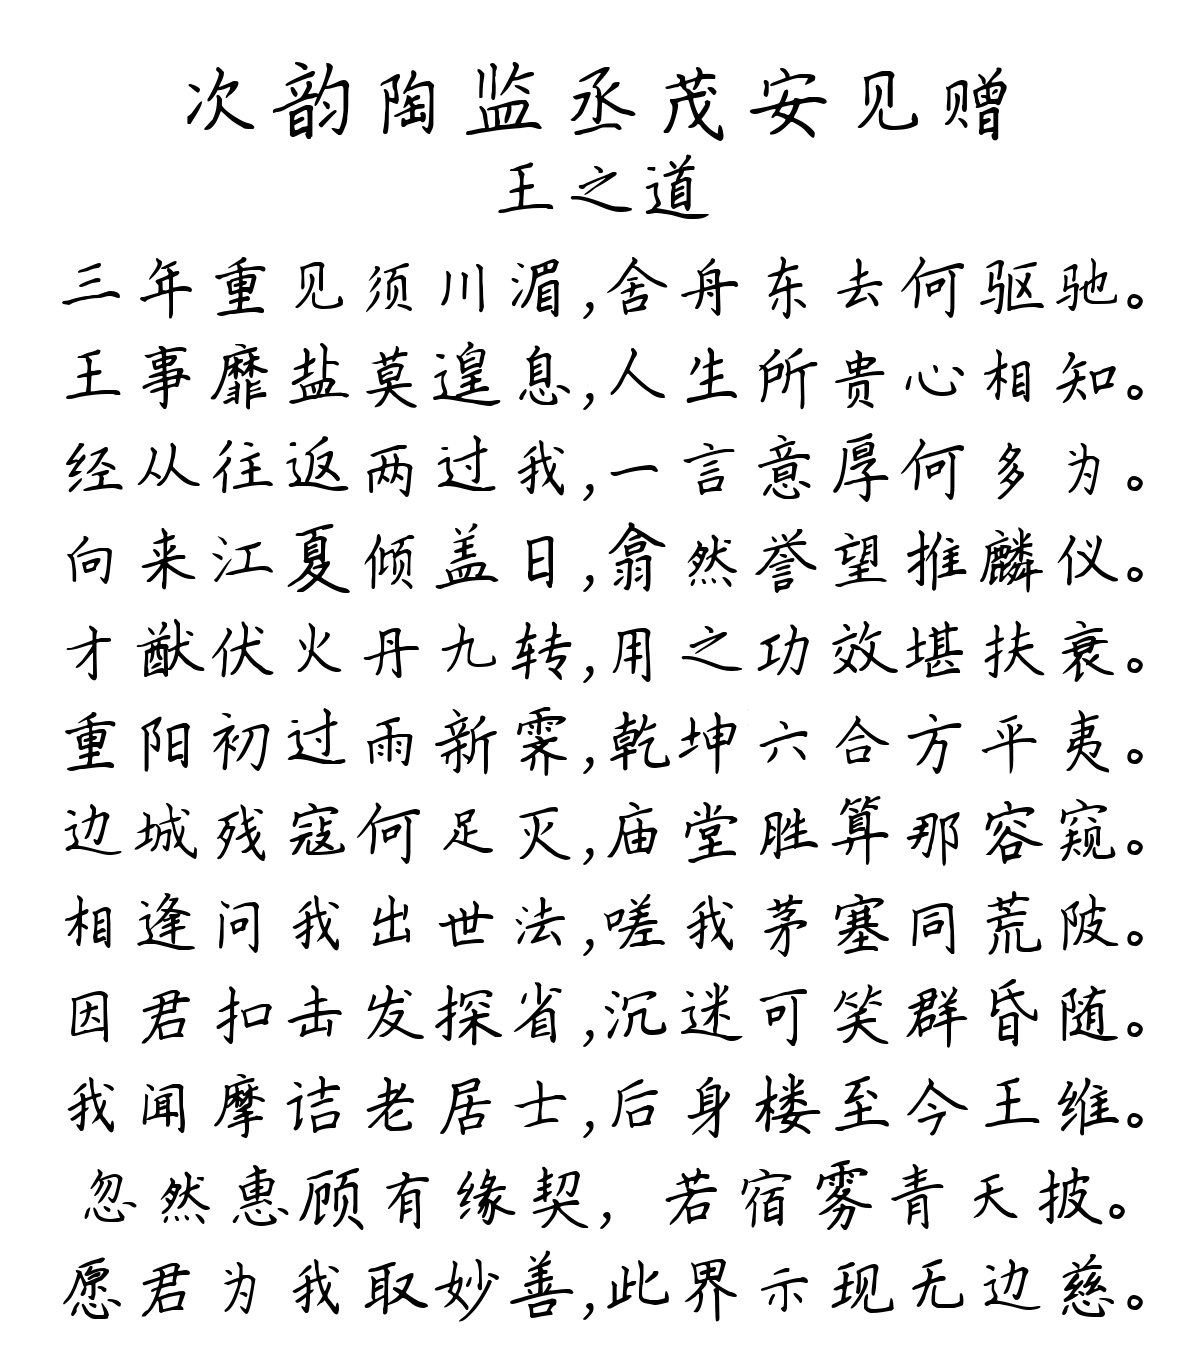 次韵陶监丞茂安见赠
王之道
三年重见须川湄,舍舟东去何驱驰。
王事靡盐莫遑息,人生所贵心相知。
经从往返两过我,一言意厚何多为。
向来江夏倾盖日,翕然誉望推麟仪。
才猷伏火丹九转,用之功效堪扶衰。
重阳初过雨新霁,乾坤六合方平夷。
边城残寇何足灭,庙堂胜算那容窥。
相逢问我出世法,嗟我茅塞同荒陂。
因君扣击发探省,沉迷可笑群昏随。
我闻摩诘老居士,后身楼至今王维。
忽然惠顾有缘契，若宿雾青天披。
愿君为我取妙善,此界示现无边慈。